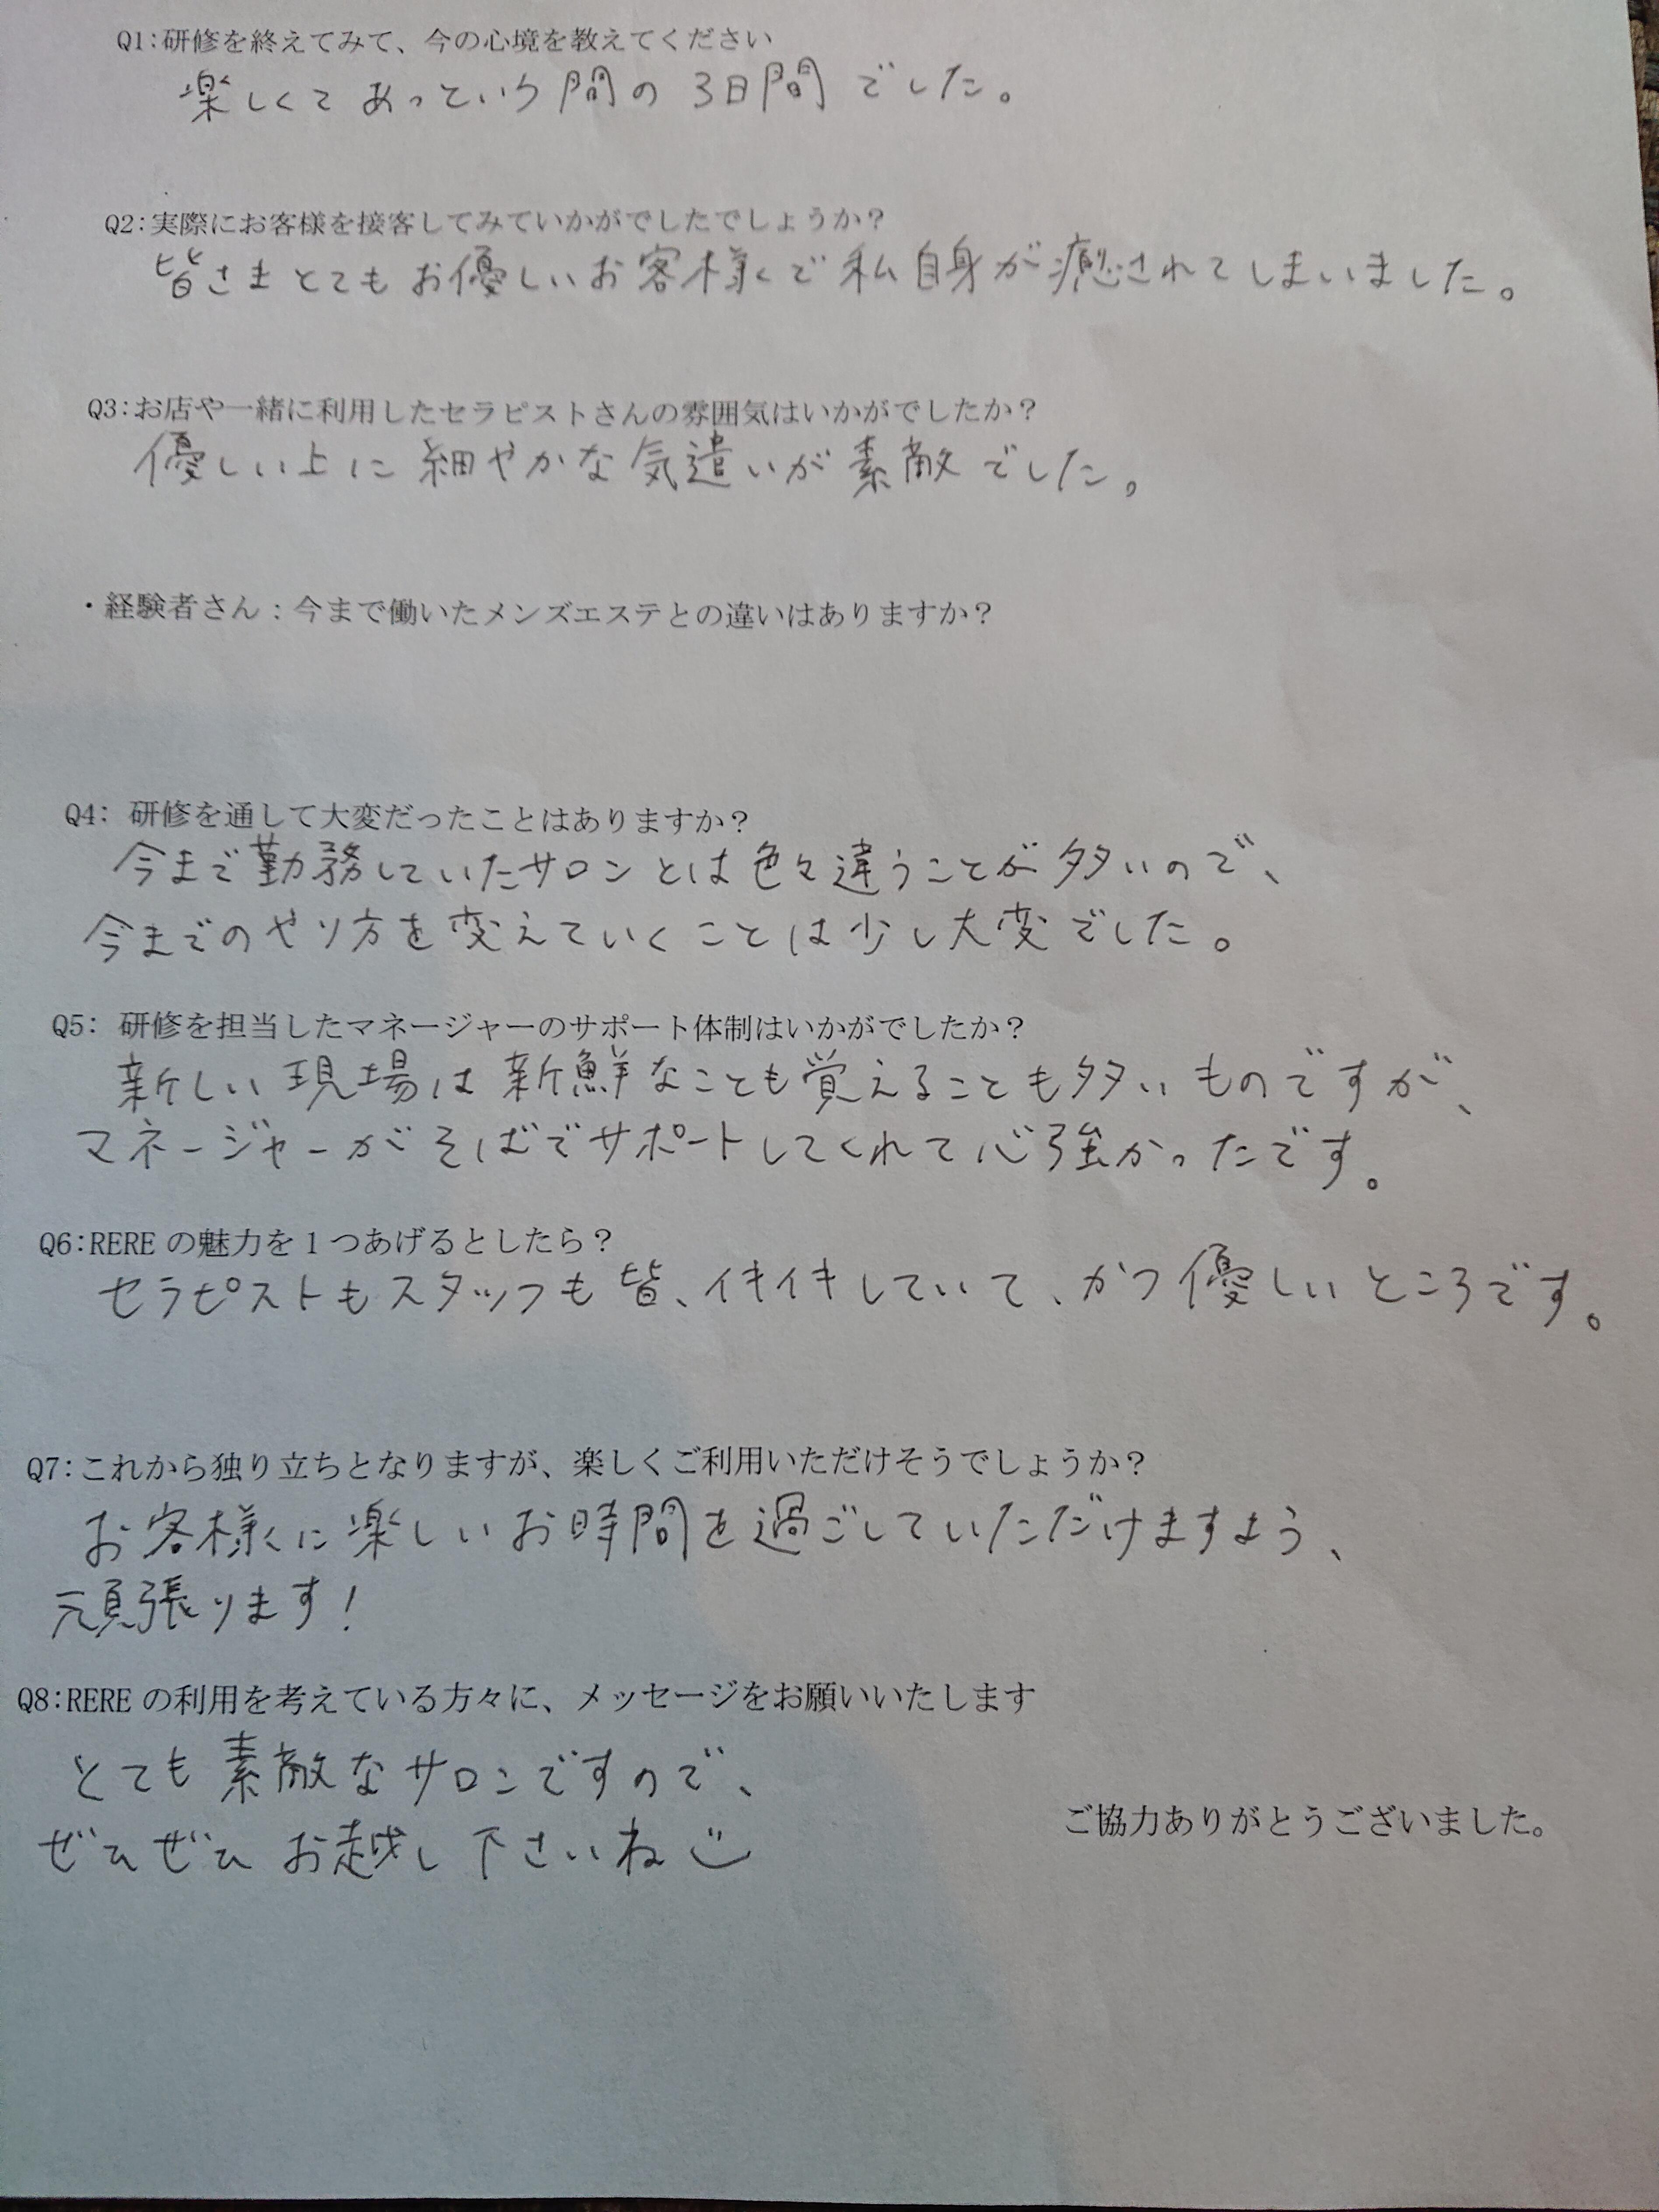 Q1:研修を終えてみて、今の心境を教えてください
楽しくてあっという間の3日間でした。
Q2:実際にお客様を接客してみていかがでしたでしょうか?
皆さまとてもお優しいお客様で私自身が癒されてしまいました。
Q3:お店や一緒に利用したセラピストさんの雰囲気はいかがでしたか?
優しい上に細やかな気遣いが素敵でした。
・経験者さん:今まで働いたメンズエステとの違いはありますか?
Q4: 研修を通して大変だったことはありますか?
今まで勤務していたサロンとは色々違うことが多いので、
今までのやり方を変えていくことは少し大変でした。
Q5: 研修を担当したマネージャーのサポート体制はいかがでしたか?
新しい現場は新鮮なことも覚えることも多いものですが、
マネージャーがそばでサポートしてくれて心強かったです。
Q6:REREの魅力を1つあげるとしたら?
セラピストもスタッフも皆、イキイキしていて、かつ優しいところです。
Q7:これから独り立ちとなりますが、楽しくご利用いただけそうでしょうか?
お客様に楽しいお時間を過ごしていただけますよう、
頑張ります!
Q8:REREの利用を考えている方々に、メッセージをお願いいたします
とても素敵なサロンですので、
ぜひぜひお越し下さいね
ご協力ありがとうございました。